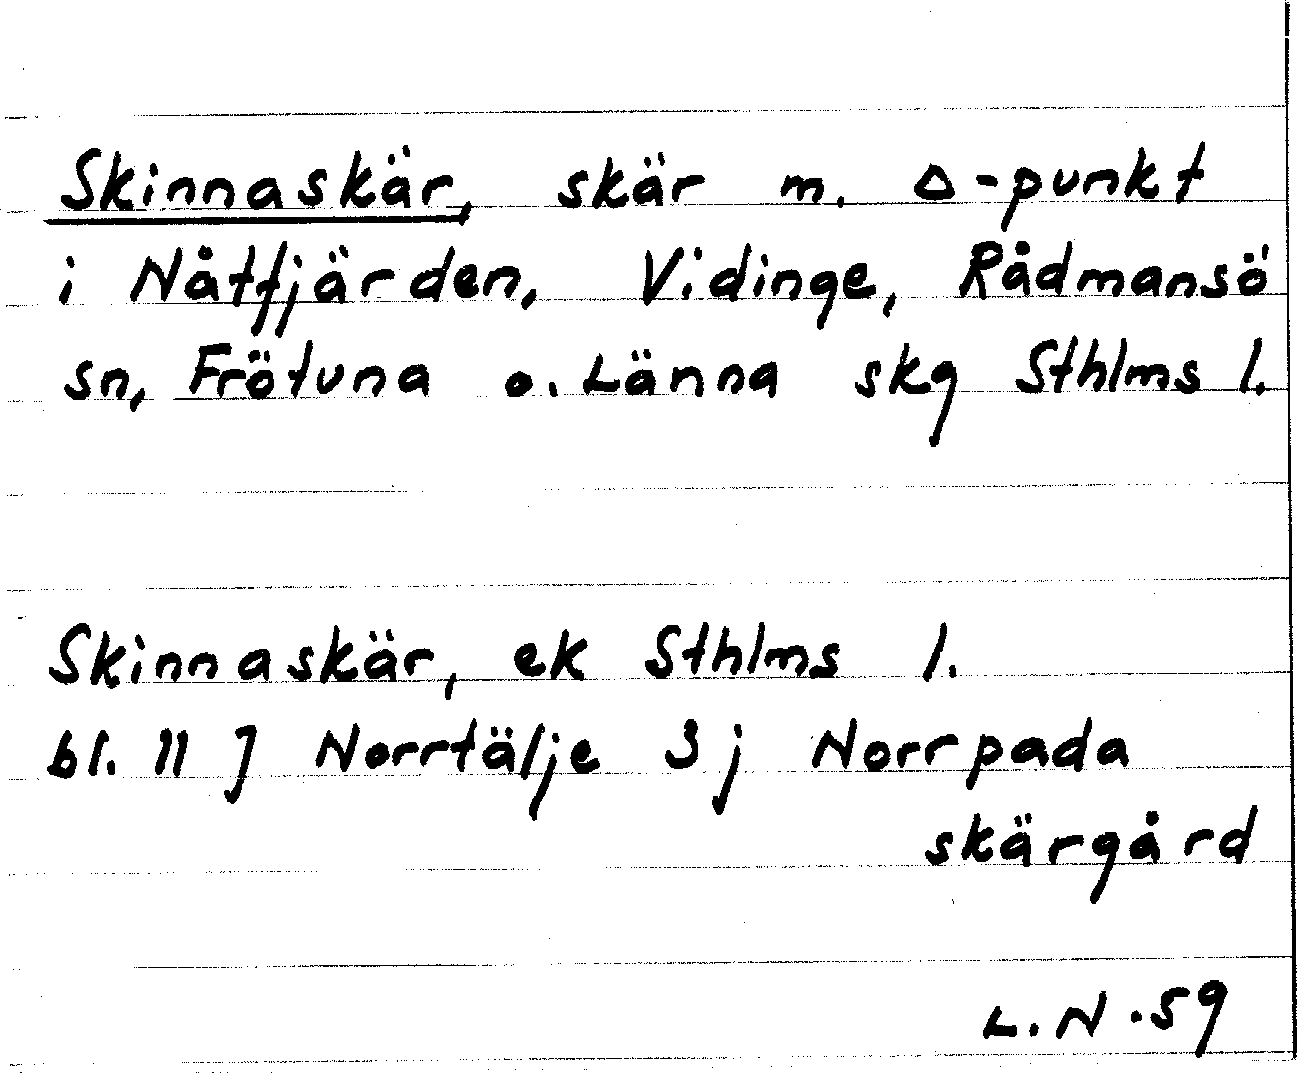 Skinnaskär, skär m. Δ-punkt
i Nåtfjärden, Vidinge, Rådmansö
sn, Frötuna o. Länna skg Sthlms l.
Skinnaskär, ek Sthlms l.
bl. 11 J Norrtälje 3 j Norrpada
skärgård
L.N.59